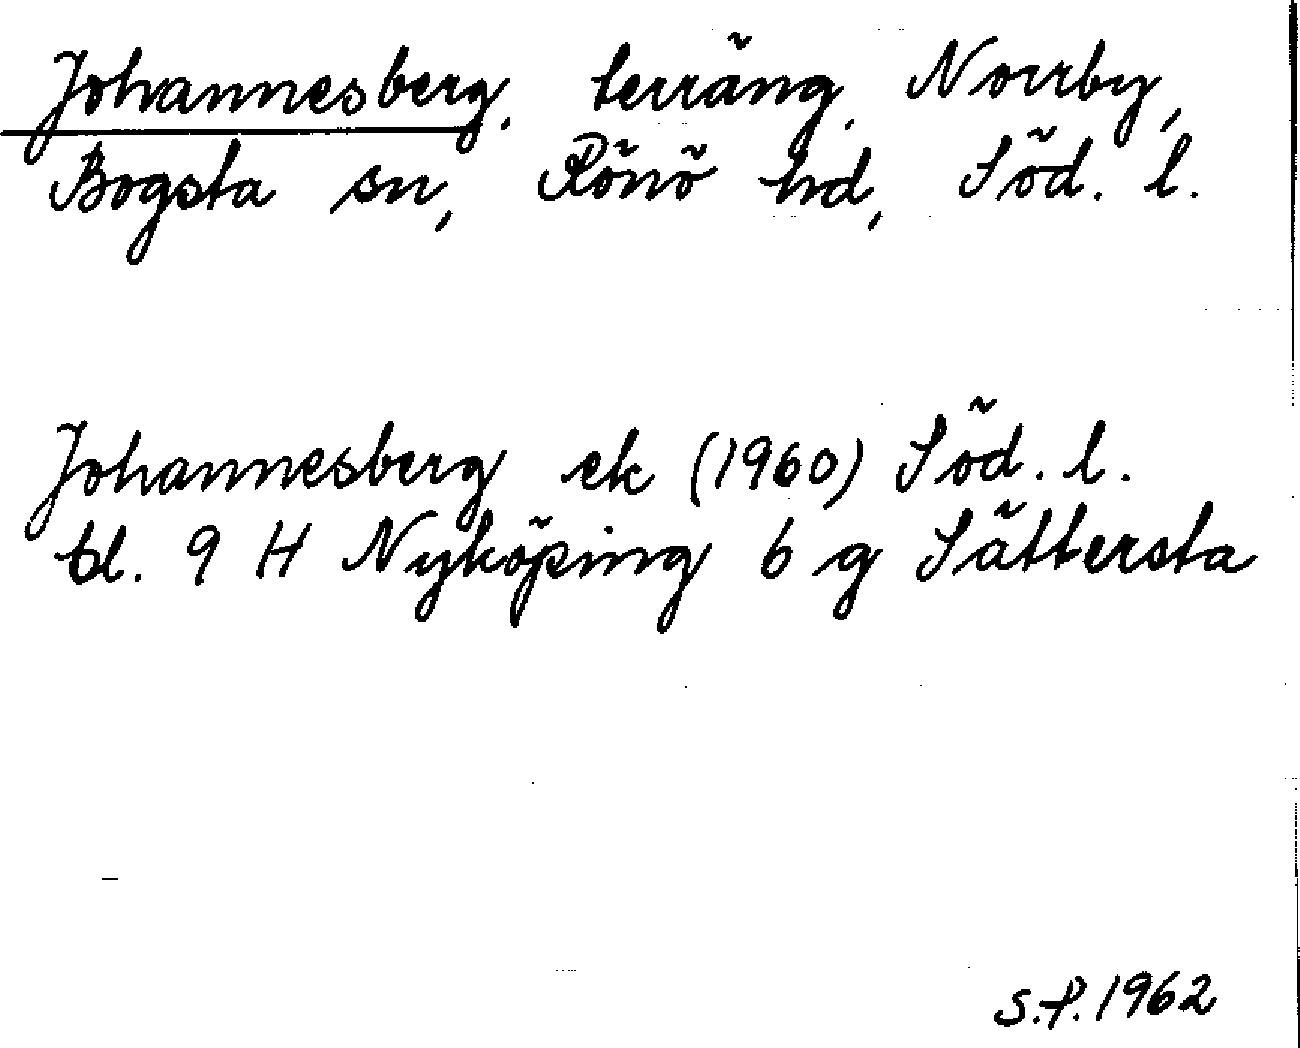 Johannesberg, terräng, Norrby,
Bogsta sn, Rönö hd, Söd. l.
Johannesberg ek (1960) Söd. l.
bl. 9 H Nyköping 6 g Sättersta
S.P. 1962